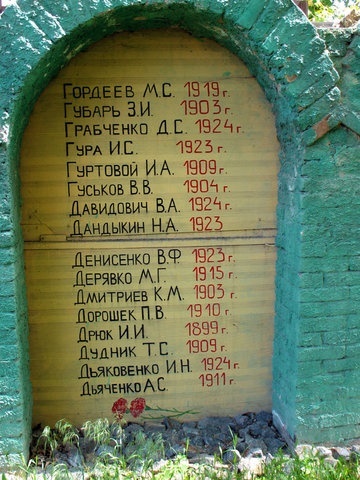 Гордеев М.С. 1919г.
Губарь З.И. 1903г.
Грабченко Д.С. 1924г.
Гура И.С. 1923г.
Гуртовой И.А. 1909г.
Гуськов В.В. 1904г.
Давидович В.А. 1924г.
Дандыкин Н.А. 1923
Денисенко В.Ф 1923г.
Дерявко М.Г. 1915г.
Дмитриев К.М. 1903г.
Дорошек П.В. 1910г.
Дрюк И.И. 1899г.
Дудник Т.С. 1909г.
Дьяковенко И.Н. 1924г.
Дьяченко А.С. 1911г.